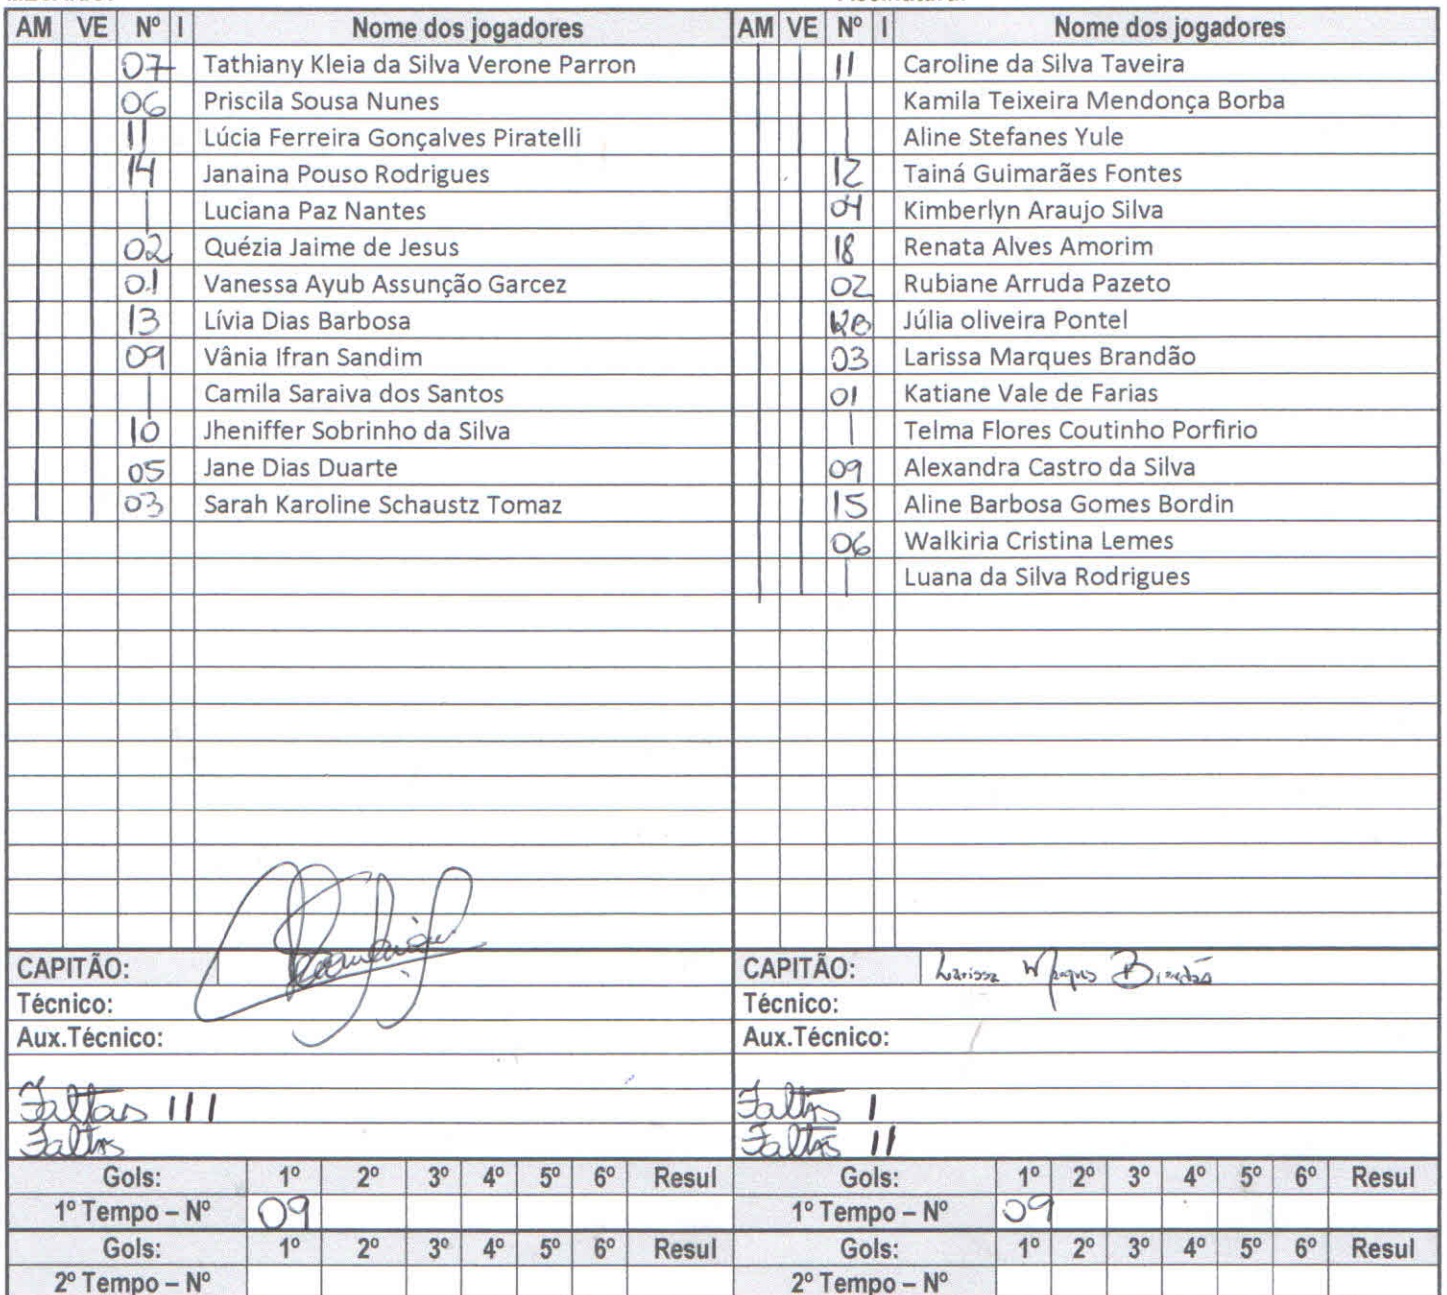 AM VE Nº I Nome dos jogadores
07 Tathiany Kleia da Silva Verone Parron
06 Priscila Sousa Nunes
11 Lúcia Ferreira Gonçalves Piratelli
14 Janaina Pouso Rodrigues
Luciana Paz Nantes
02 Quézia Jaime de Jesus
01 Vanessa Ayub Assunção Garcez
13 Lívia Dias Barbosa
09 Vânia Ifran Sandim
Camila Saraiva dos Santos
10 Jheniffer Sobrinho da Silva
05 Jane Dias Duarte
03 Sarah Karoline Schaustz Tomaz
CAPITÃO:
Técnico:
Aux.Técnico:
Faltas III
Faltas
Gols: 1º 2º 3º 4º 5º 6º Resul
1º Tempo – Nº 09
Gols: 1º 2º 3º 4º 5º 6º Resul
2º Tempo – Nº
AM VE Nº I Nome dos jogadores
11 Caroline da Silva Taveira
Kamila Teixeira Mendonça Borba
Aline Stefanes Yule
12 Tainá Guimarães Fontes
04 Kimberlyn Araujo Silva
18 Renata Alves Amorim
02 Rubiane Arruda Pazeto
Júlia oliveira Pontel
03 Larissa Marques Brandão
01 Katiane Vale de Farias
Telma Flores Coutinho Porfirio
09 Alexandra Castro da Silva
15 Aline Barbosa Gomes Bordin
06 Walkiria Cristina Lemes
Luana da Silva Rodrigues
CAPITÃO: Larissa Marques Brandão
Técnico:
Aux.Técnico:
Faltas I
Faltas II
Gols: 1º 2º 3º 4º 5º 6º Resul
1º Tempo – Nº 09
Gols: 1º 2º 3º 4º 5º 6º Resul
2º Tempo – Nº